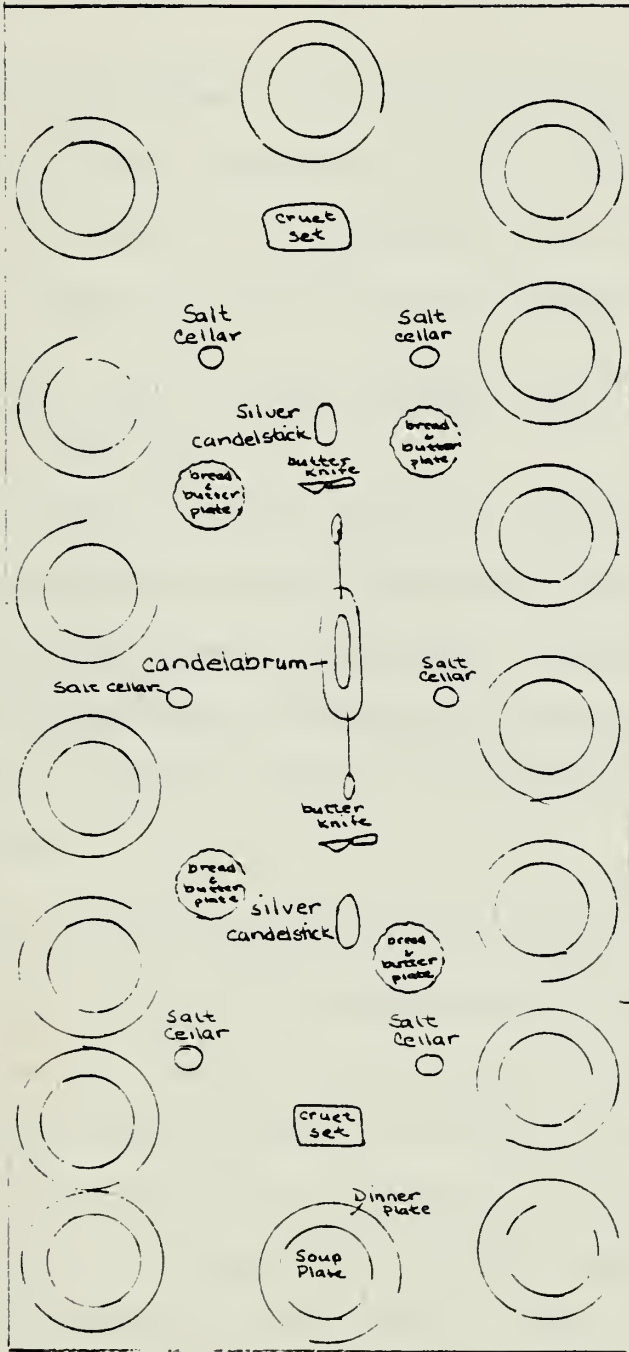 cruet
set
Salt
cellar
Salt
cellar
Silver
candelstick
bread
&
butter
plate
butter
knife
bread
&
butter
plate
candelabrum
Salt cellar
Salt
cellar
butter
knife
bread
&
butter
plate
silver
candelstick
bread
&
butter
plate
Salt
Cellar
Salt
Cellar
cruet
set
Dinner
Plate
Soup
Plate